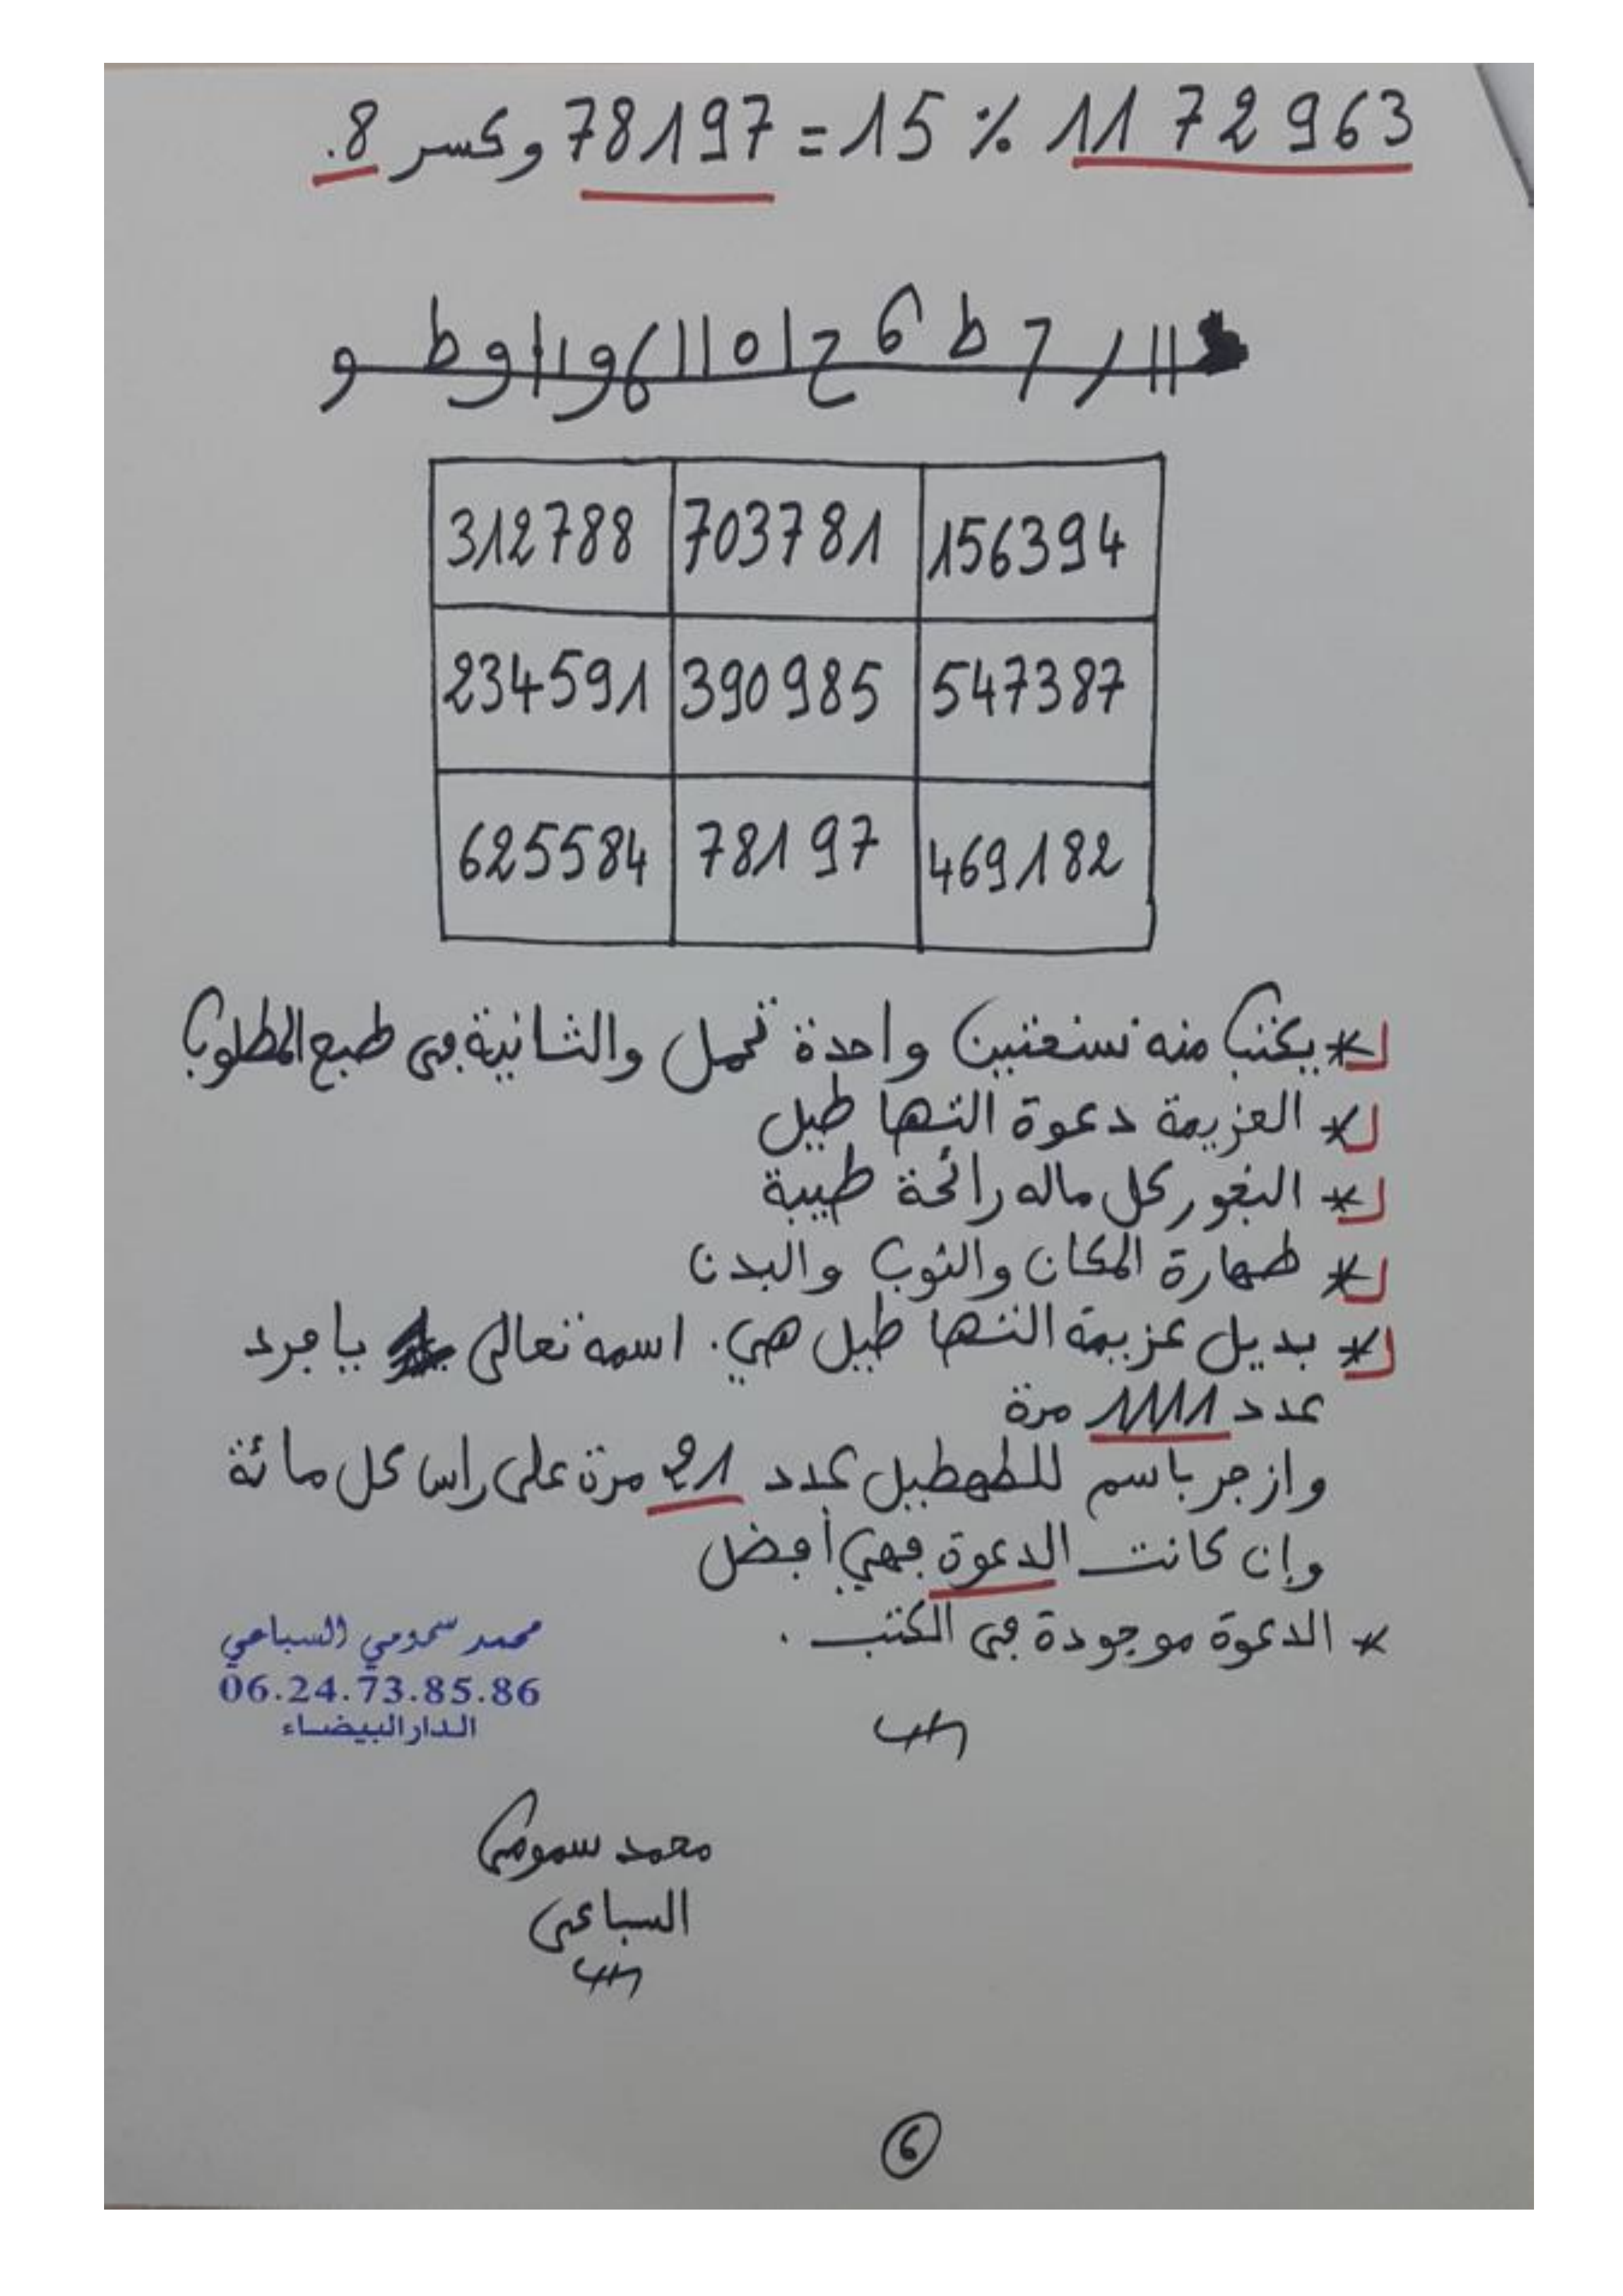 1172963 % 15 = 78197 وكسر 8.
312788 703781 156394
234591 390985 547387
625584 78197 469182
* يكتب منه نسختين واحدة تحمل والثانية في طبع المطلوب
* العزيمة دعوة التهاطيل
* البخور كل ماله رائحة طيبة
* طهارة المكان والثوب والبدن
* بديل عزيمة التهاطيل هي. اسمه تعالى يا فرد
عدد 11111 مرة
وازجر باسم للطهطيل عدد 21 مرة على راس كل مائة
وإن كانت الدعوة فهي أفضل
* الدعوة موجودة في الكتب.
محمد سمومي السباعي
06.24.73.85.86
الدار البيضاء
محمد سمومي
السباعي
6